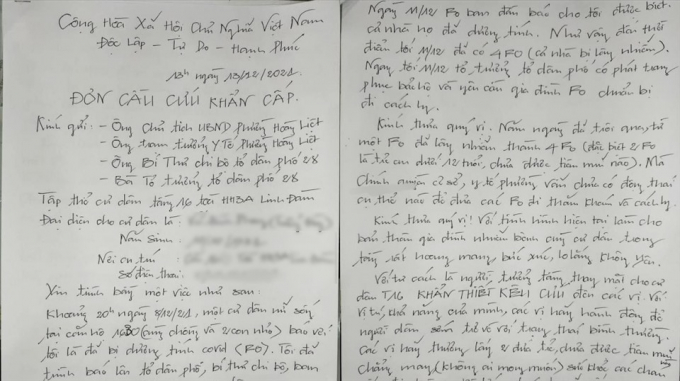 Cộng Hòa Xã Hội Chủ Nghĩa Việt Nam
Độc Lập - Tự Do - Hạnh Phúc
13h ngày 13/12/2021.
ĐƠN CẦU CỨU KHẨN CẤP.
Kính gửi: - Ông Chủ tịch UBND phường Hoàng Liệt
- Ông trạm trưởng Y Tế Phường Hoàng Liệt
- Ông Bí Thư chi bộ tổ dân phố 28
- Bà Tổ trưởng tổ dân phố 28
Tập thể cư dân tầng 16 toà HH3A Linh Đàm
Đại diện cho cư dân là
Năm sinh:
Nơi cư trú
Số điện thoại:
Xin trình bày một việc như sau:
Khoảng 20h ngày 8/12/21, một cư dân nữ sống
tại căn hộ 1630 (cùng chồng và 2 con nhỏ) báo với
tôi là đã bị dương tính covid (F0). Tôi đã
trình báo lên tổ dân phố, bí thư chi bộ, ban
Ngày 11/12 F0 ban đầu báo cho tôi được biết
cả nhà họ đã dương tính. Như vậy đến thời
điểm tối 11/12 đã có 4 F0 (cả nhà bị lây nhiễm).
Ngay tối 11/12 tổ trưởng tổ dân phố có phát trang
phục bảo hộ và yêu cầu gia đình F0 chuẩn bị
đi cách ly.
Kính thưa quý vị. Năm ngày đã trôi qua, từ
một F0 đã lây nhiễm thành 4 F0 (đặc biệt 2 F0
là trẻ em dưới 12 tuổi, chưa được tiêm mũi nào). Mà
chính quyền cơ sở, y tế phường vẫn chưa có động thái
cụ thể nào để đưa các F0 đi thăm khám và cách ly.
Kính thưa quý vị! Với tình hình hiện tại làm cho
bản thân gia đình nhiễm bệnh cùng cư dân trong
tầng rất hoang mang, bức xúc, lo lắng không yên.
Với tư cách là người trưởng tầng thay mặt cho cư
dân T16 KHẨN THIẾT KÊU CỨU đến các vị. Với
vị trí, khả năng của mình, các vị hãy hành động để
người dân sớm trở về với trạng thái bình thường.
Các vị hãy thương lấy 2 đứa trẻ, chưa được tiêm mũi
chẳng may (không ai mong muốn) sức khỏe các cháu